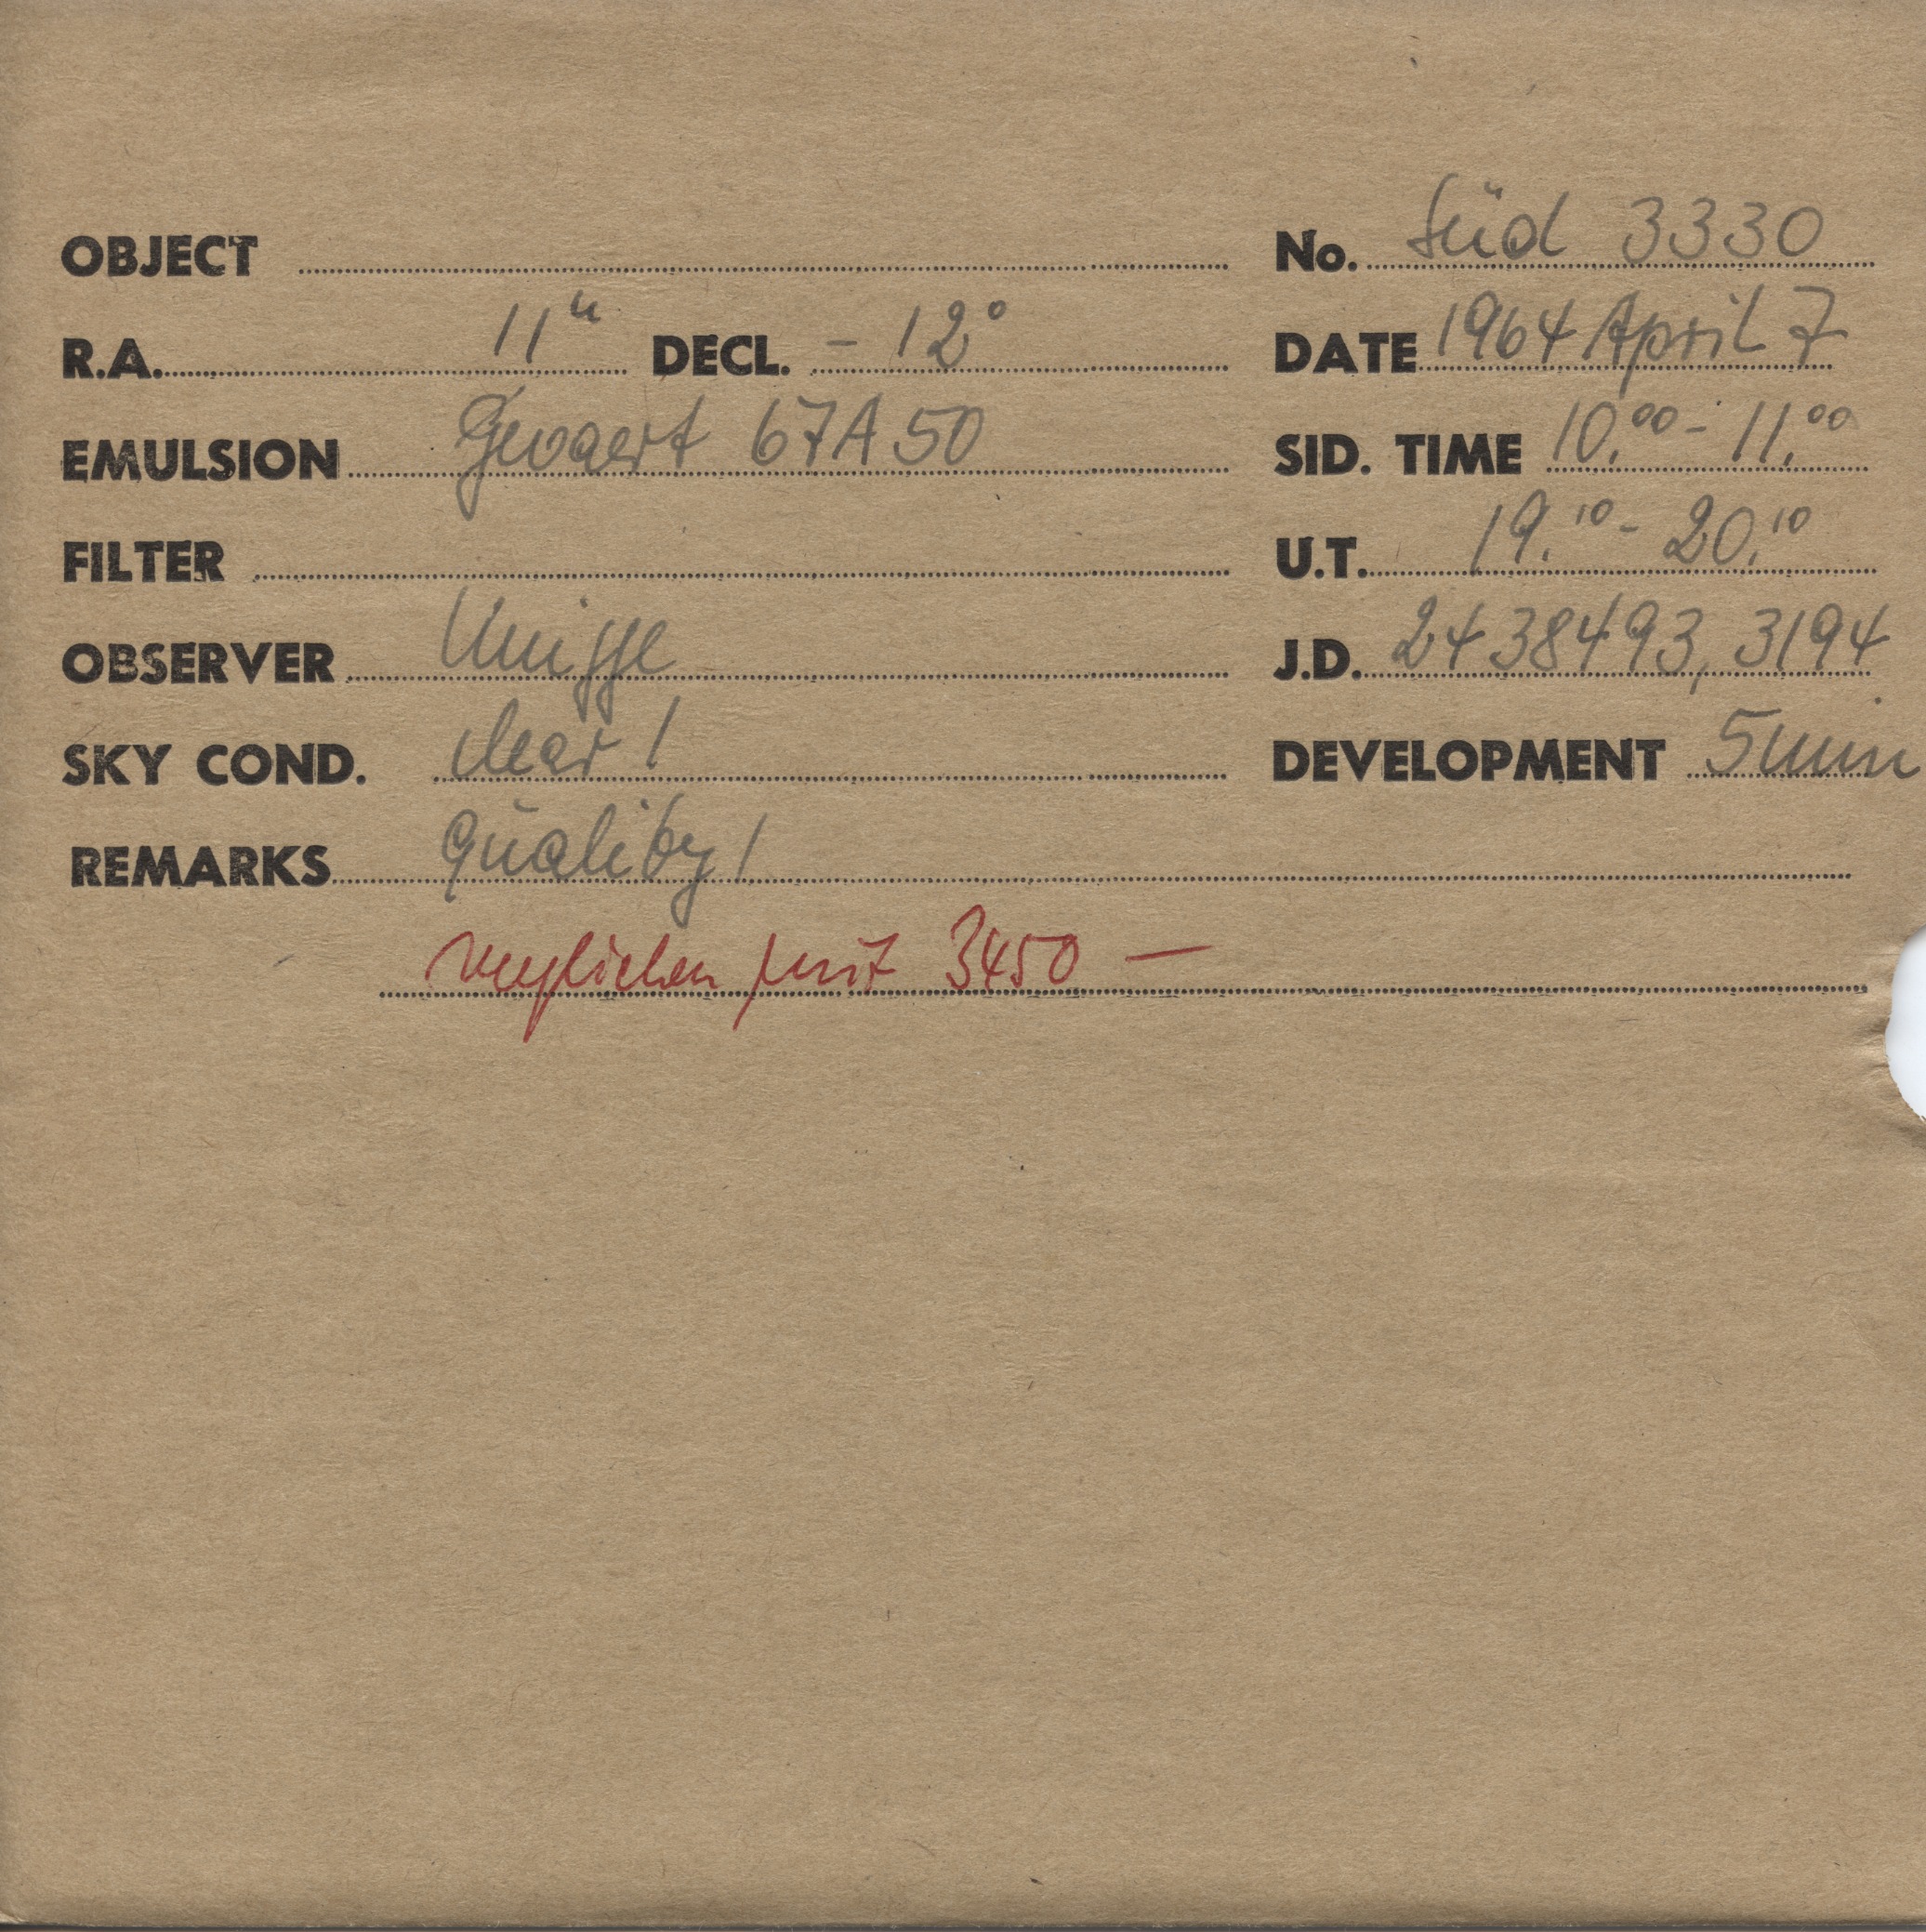 OBJECT No. Süd 3330
R.A. 11h DECL. - 12° DATE 1964 April 7
EMULSION Gevaert 67A50 SID. TIME 10.00 - 11.00
FILTER U.T. 19.10 - 20.10
OBSERVER J.D. 2438493,3194
SKY COND. clear! DEVELOPMENT 5 min
REMARKS quality!
verglichen mit 3450 —